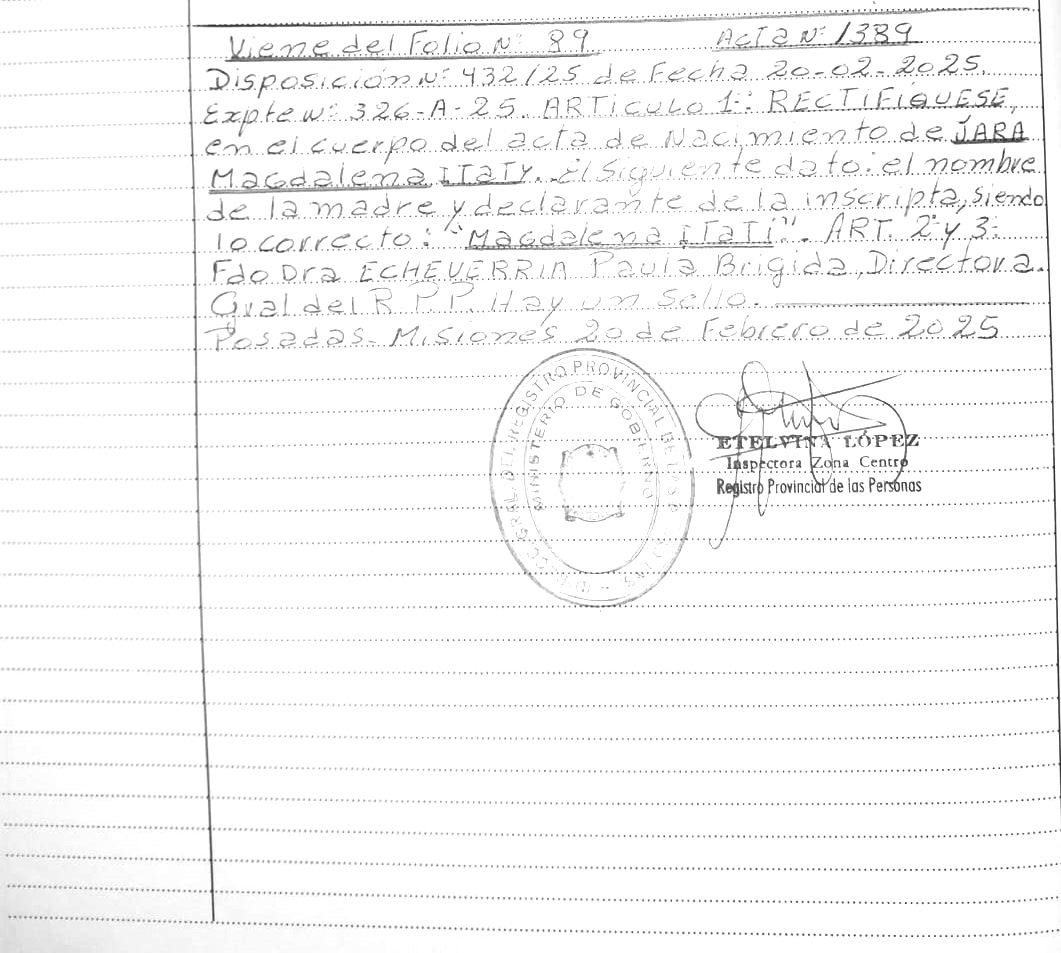 Viene del Folio Nº 89 Acta Nº 1389
Disposición Nº 432/25 de Fecha 20-02-2025.
Expte Nº 326-A-25. ARTiculo 1º: RECTIFIQUESE,
en el cuerpo del acta de Nacimiento de JARA
Magdalena ITATY. El Siguiente dato: el nombre
de la madre y declarante de la inscripta, siendo
lo correcto: "Magdalena ITATÍ". ART. 2º y 3º
Fdo Dra ECHEVERRIA Paula Brigida, Directora.
Gral del R.P.P. Hay un Sello.
Posadas. Misiones 20 de Febrero de 2025
GRAL. DEL REGISTRO PROVINCIAL DE LAS
MINISTERIO DE GOBIERNO
ETELVINA LÓPEZ
Inspectora Zona Centro
Registro Provincial de las Personas